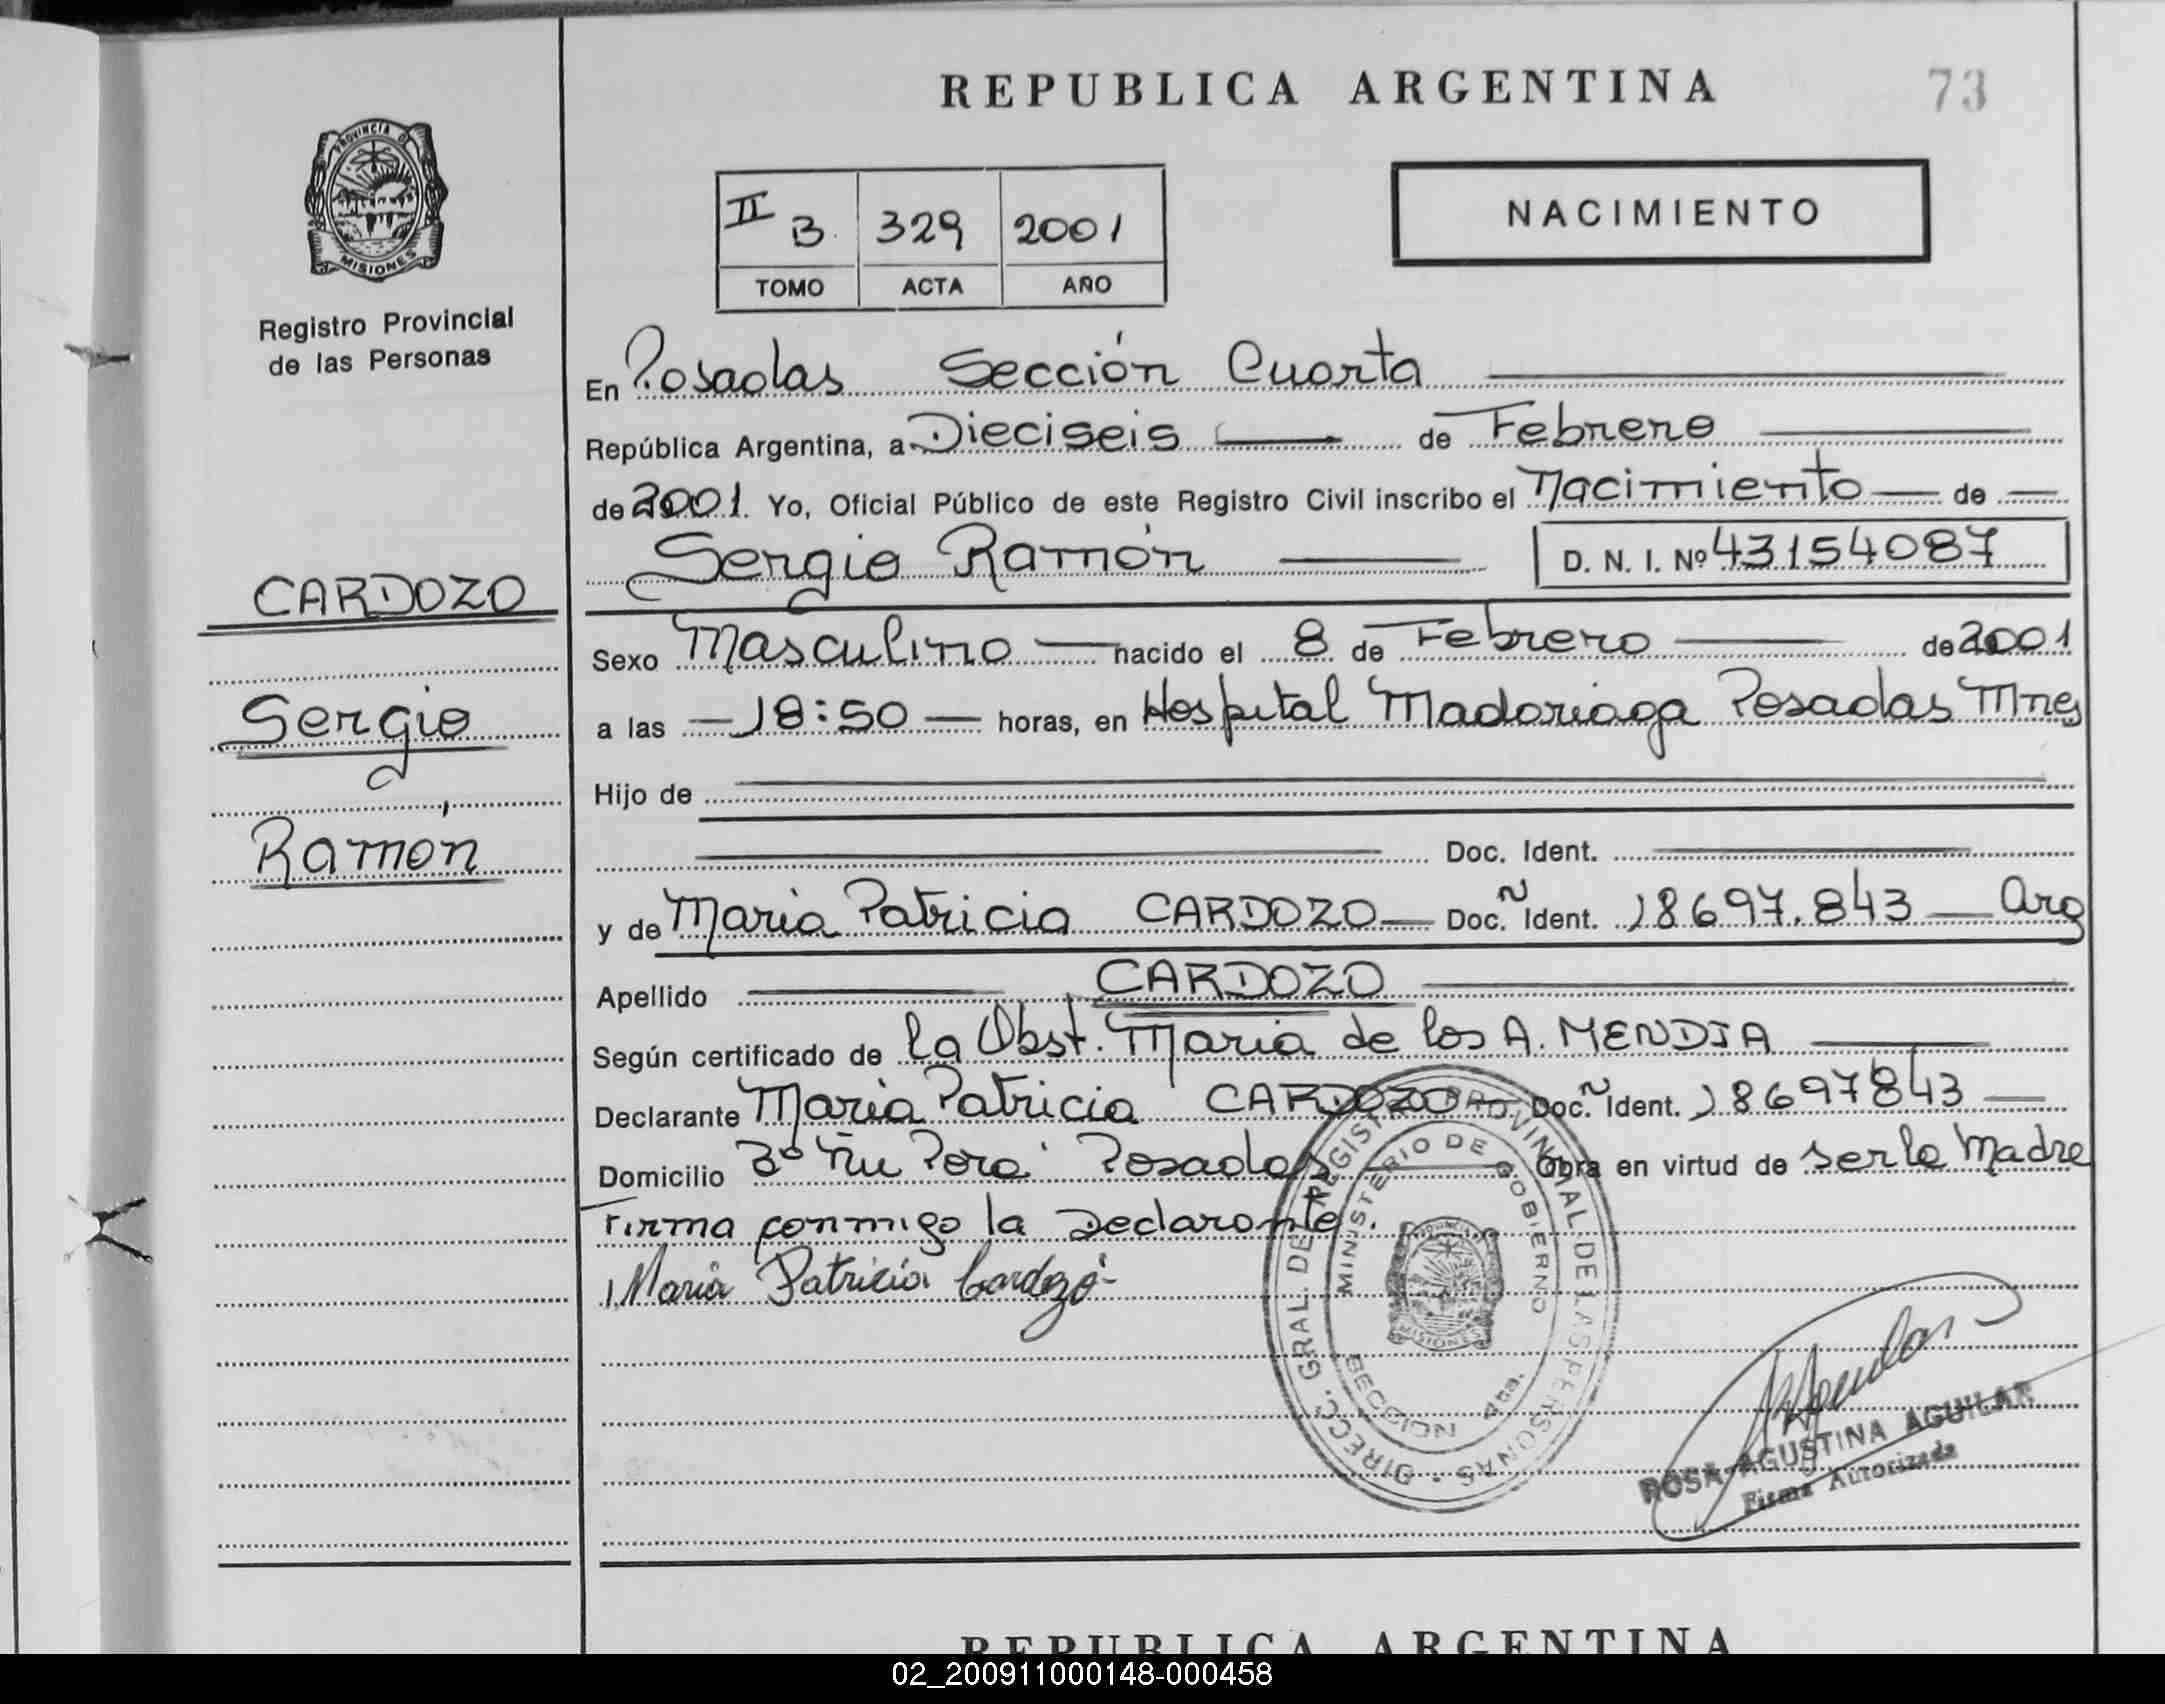 REPUBLICA ARGENTINA
73
PROVINCIA DE
MISIONES
Registro Provincial
de las Personas
II B. 329 2001
TOMO ACTA AÑO
NACIMIENTO
En Posadas Sección Cuarta
República Argentina, a Dieciseis de Febrero
de 2001. Yo, Oficial Público de este Registro Civil inscribo el Nacimiento de
Sergio Ramón D. N. I. Nº 43154087
CARDOZO
Sergio
Ramón
Sexo Masculino nacido el 8 de Febrero de 2001
a las 18:50 horas, en Hospital Madariaga Posadas Mnes
Hijo de
Doc. Ident.
y de Maria Patricia CARDOZO Doc. Ident. 18697.843 Arg
Apellido CARDOZO
Según certificado de la Obst. Maria de los A. MENDIA
Declarante Maria Patricia CARDOZO Doc. Ident. 18697843
Domicilio Bº Ñu Porá Posadas Obra en virtud de ser la Madre
Firma conmigo la Declarante.
Maria Patricia Cardozo
DIRECC. GRAL. DE REGISTRO PROVINCIAL DE LAS PERSONAS
MINISTERIO DE GOBIERNO
SECCION 4ta.
MISIONES
ROSA AGUSTINA AGUILAR
Firma Autorizada
REPUBLICA ARGENTINA
02_200911000148-000458